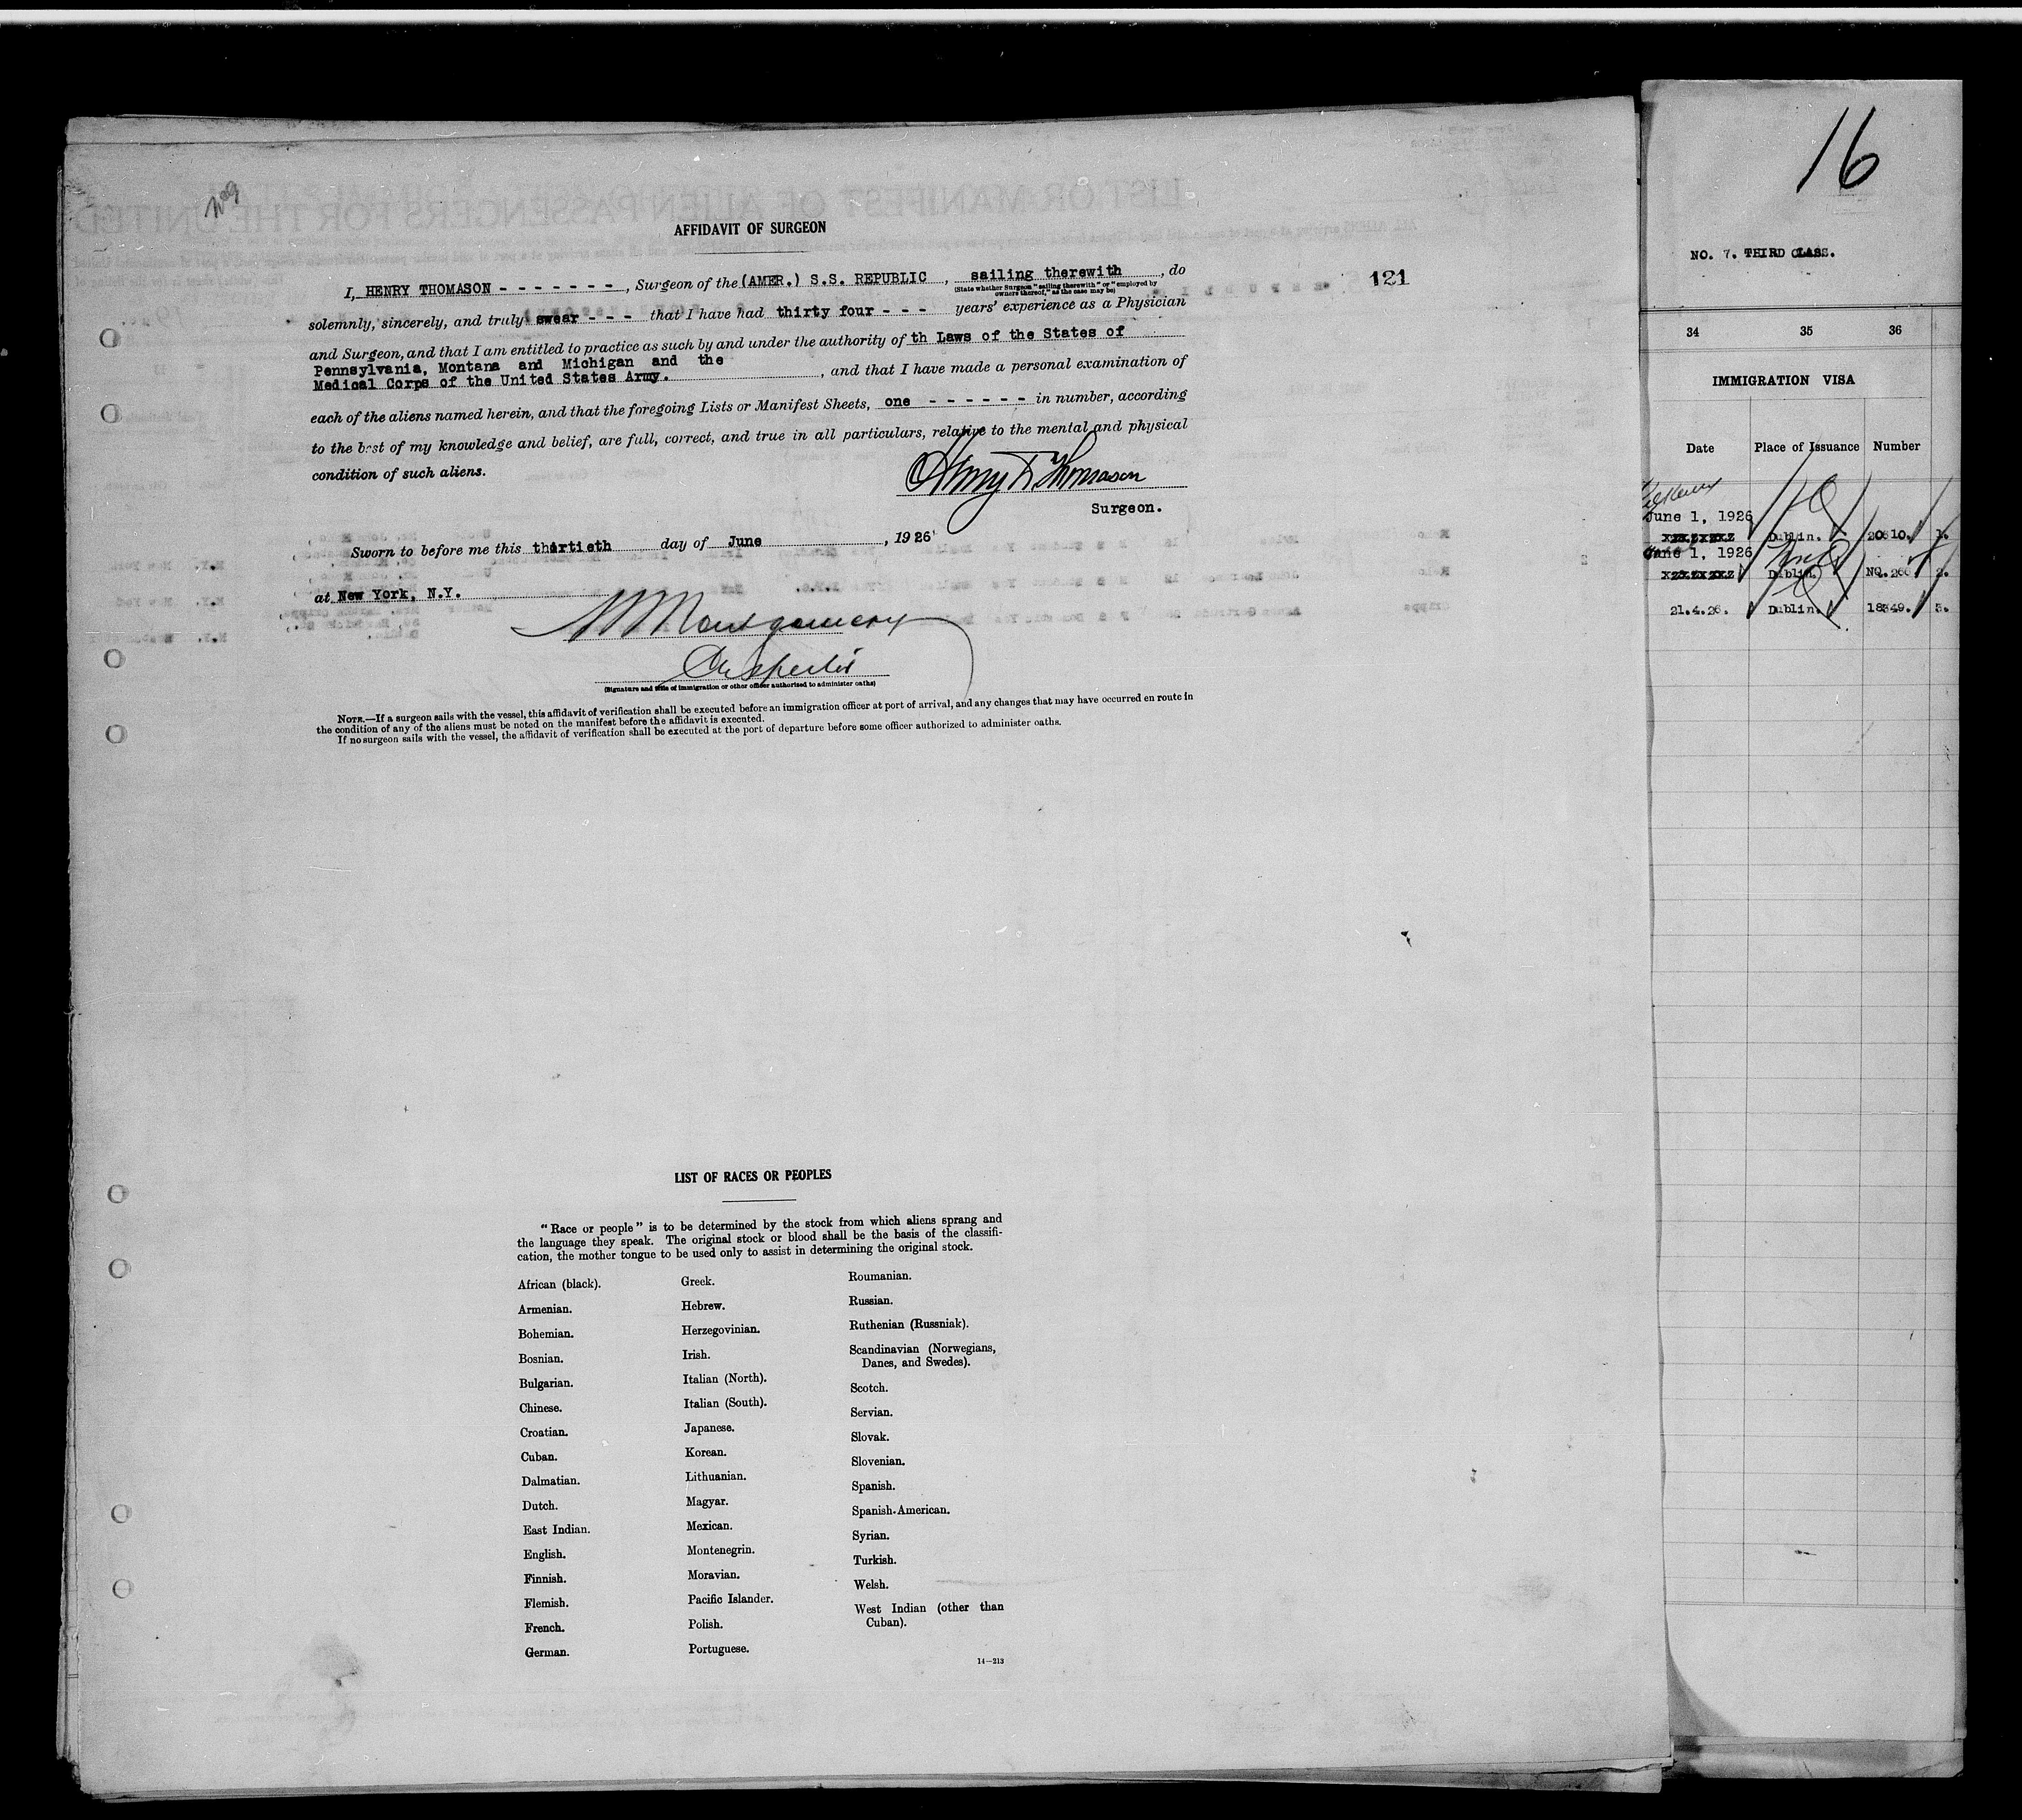 AFFIDAVIT OF SURGEON
I, HENRY THOMASON - - - - - - - , Surgeon of the (AMER.) S.S. REPUBLIC , sailing therewith , do
(State whether Surgeon "sailing therewith" or "employed by
owners thereof," as the case may be)
solemnly, sincerely, and truly swear - - - that I have had thirty four - - - years' experience as a Physician
and Surgeon, and that I am entitled to practice as such by and under the authority of th Laws of the States of
Pennsylvania, Montana and Michigan and the
Medical Corps of the United States Army. , and that I have made a personal examination of
each of the aliens named herein, and that the foregoing Lists or Manifest Sheets, one - - - - - - in number, according
to the best of my knowledge and belief, are full, correct, and true in all particulars, relative to the mental and physical
condition of such aliens.
Henry Thomason
Surgeon.
Sworn to before me this thirtieth day of June , 1926
at New York, N.Y.
Montgomery
(Signature and title of immigration or other officer authorized to administer oaths)
NOTE.—If a surgeon sails with the vessel, this affidavit of verification shall be executed before an immigration officer at port of arrival, and any changes that may have occurred en route in
the condition of any of the aliens must be noted on the manifest before the affidavit is executed.
If no surgeon sails with the vessel, the affidavit of verification shall be executed at the port of departure before some officer authorized to administer oaths.
121
LIST OF RACES OR PEOPLES
"Race or people" is to be determined by the stock from which aliens sprang and
the language they speak. The original stock or blood shall be the basis of the classifi-
cation, the mother tongue to be used only to assist in determining the original stock.
African (black).
Armenian.
Bohemian.
Bosnian.
Bulgarian.
Chinese.
Croatian.
Cuban.
Dalmatian.
Dutch.
East Indian.
English.
Finnish.
Flemish.
French.
German.
Greek.
Hebrew.
Herzegovinian.
Irish.
Italian (North).
Italian (South).
Japanese.
Korean.
Lithuanian.
Magyar.
Mexican.
Montenegrin.
Moravian.
Pacific Islander.
Polish.
Portuguese.
Roumanian.
Russian.
Ruthenian (Russniak).
Scandinavian (Norwegians,
Danes, and Swedes).
Scotch.
Servian.
Slovak.
Slovenian.
Spanish.
Spanish-American.
Syrian.
Turkish.
Welsh.
West Indian (other than
Cuban).
14—213
16
NO. 7. THIRD CLASS.
34 35 36
IMMIGRATION VISA
Date Place of Issuance Number
June 1, 1926
Dublin. 20610. 1.
June 1, 1926
Dublin. NQ. 266 2.
21.4.26. Dublin. 18849. 3.